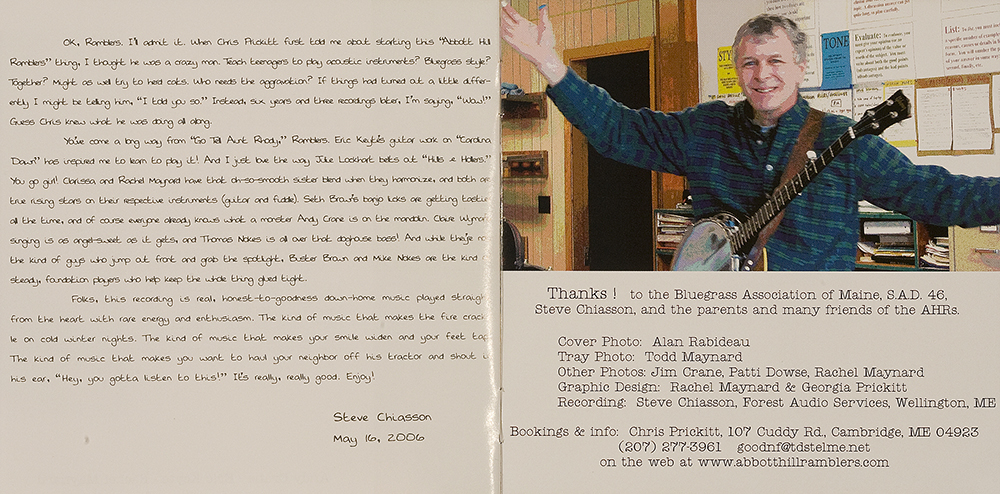 OK, Ramblers. I'll admit it. When Chris Prickitt first told me about starting this "Abbott Hill
Ramblers" thing, I thought he was a crazy man. Teach teenagers to play acoustic instruments? Bluegrass style?
Together? Might as well try to herd cats. Who needs the aggravation? If things had turned out a little differ-
ently I might be telling him, "I told you so." Instead, six years and three recordings later, I'm saying, "Wow!"
Guess Chris knew what he was doing all along.
You've come a long way from "Go Tell Aunt Rhody," Ramblers. Eric Keyte's guitar work on "Carolina
Dawn" has inspired me to learn to play it! And I just love the way Julie Lockhart belts out "Hills & Hollers."
You go girl! Clarissa and Rachel Maynard have that oh-so-smooth sister blend when they harmonize, and both are
true rising stars on their respective instruments (guitar and fiddle). Seth Brown's banjo licks are getting tastier
all the time, and of course everyone already knows what a monster Andy Crane is on the mandolin. Claire Wyman's
singing is as angel-sweet as it gets, and Thomas Nokes is all over that doghouse bass! And while they're not
the kind of guys who jump out front and grab the spotlight, Buster Brown and Mike Nokes are the kind of
steady, foundation players who help keep the whole thing glued tight.
Folks, this recording is real, honest-to-goodness down-home music played straight
from the heart with rare energy and enthusiasm. The kind of music that makes the fire crack-
le on cold winter nights. The kind of music that makes your smile widen and your feet tap.
The kind of music that makes you want to haul your neighbor off his tractor and shout in
his ear, "Hey, you gotta listen to this!" It's really, really good. Enjoy!
Steve Chiasson
May 16, 2006
TONE
Evaluate:
List:
Thanks ! to the Bluegrass Association of Maine, S.A.D. 46,
Steve Chiasson, and the parents and many friends of the AHRs.
Cover Photo: Alan Rabideau
Tray Photo: Todd Maynard
Other Photos: Jim Crane, Patti Dowse, Rachel Maynard
Graphic Design: Rachel Maynard & Georgia Prickitt
Recording: Steve Chiasson, Forest Audio Services, Wellington, ME
Bookings & info: Chris Prickitt, 107 Cuddy Rd., Cambridge, ME 04923
(207) 277-3961 goodnf@tdstelme.net
on the web at www.abbotthillramblers.com